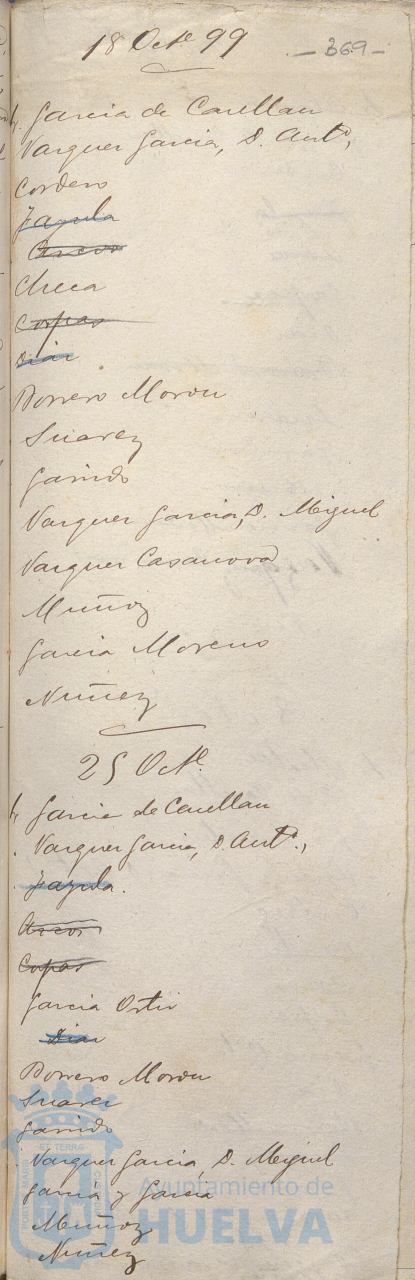 18 Oct.e 99
- 369 -
Sr. Garcia de Casellan
Vazquez Garcia, D. Ant.o,
Cordero
Jazula
Arcos
Checa
Corpas
Diaz
Borrero Moron
Suarez
Garrido
Vazquez Garcia, D. Miguel
Vazquez Casanova
Muñoz
Garcia Moreno
Nuñez
25 Oct.e
Garcia de Casellan
Vazquez Garcia, D. Ant.o,
Jazula.
Arcos
Copas
Garcia Ortiz
Diaz
Borrero Moron
Suarez
Garrido
Vazquez Garcia, D. Miguel
Garcia y Garcia
Muñoz
Nuñez
Ayuntamiento de
HUELVA